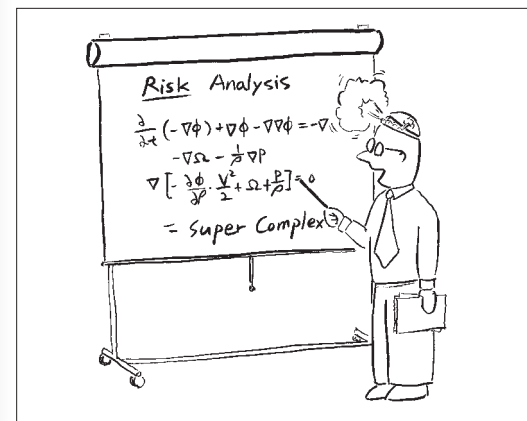 Risk Analysis
∂/∂t (-∇φ) + ∇φ - ∇∇φ = -∇
-∇Ω - 1/ρ ∇P
∇ [- ∂φ/∂P · V²/2 + Ω + P/ρ] = 0
= Super Complex